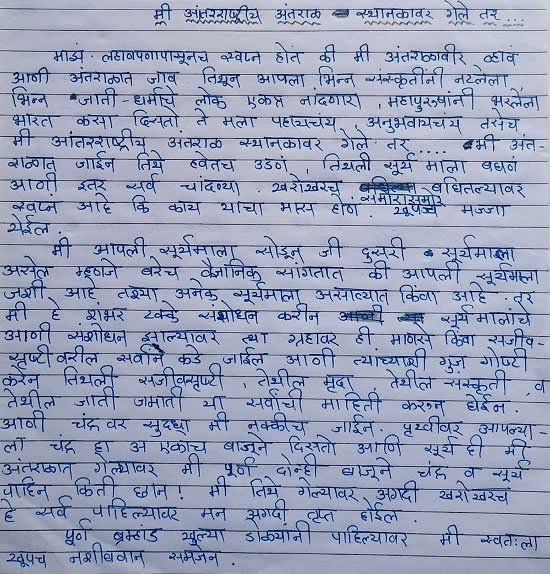 मी अंतरराष्ट्रीय अंतराळ स्थानकावर गेले तर ...
माझं लहानपणापासूनच स्वप्न होतं की मी अंतराळवीर व्हावं
आणी अंतराळात जावं तिथून आपला भिन्न संस्कृतींनी नटलेला
भिन्न जाती-धर्माचे लोक एकत्र नांदणारा, महापुरुषांनी भरलेला
भारत कसा दिसतो ते मला पहायचंय अनुभवायचंय तसंच
मी आंतरराष्ट्रीय अंतराळ स्थानकावर गेले तर .... मी अंत-
राळात जाईन तिथे हवेतच उडणं तिथली सूर्य माला बघणं
आणी इतर सर्व चांदण्या. खरोखरंच समोरासमोर बघितल्यावर
स्वप्न आहे कि काय याचा भास होणं. खूपच मज्जा
येईल.
मी आपली सूर्यमाला सोडून जी दुसरी सूर्यमाला
असेल म्हणजे बरेच वैज्ञानिक सांगतात की आपली सूर्यमाला
जशी आहे तश्या अनेक सूर्यमाला असाव्यात किंवा आहे. तर
मी हे शंभर टक्के संशोधन करीन सूर्य मालांचे
आणी संशोधन झाल्यावर त्या ग्रहावर ही माणसे किंवा सजीव-
सृष्टी वरील सर्वांन कडे जाईल आणी त्याच्याशी गुज गोष्टी
करेन तिथली सजीवसृष्टी, तेथील मृदा, तेथील संस्कृती, व
तेथील जाती जमाती या सर्वांची माहिती करुन घेईन.
आणी चंद्रावर सुद्धा मी नक्कीच जाईन. पृथ्वीवर आपल्या-
ला चंद्र हा अ एकाच बाजूने दिसतो आणी सूर्य ही मी
अंतराळात गेल्यावर मी पूर्ण दोन्ही बाजूने चंद्र व सूर्य
पाहिन किती छान! मी तिथे गेल्यावर अगदी खरोखरंच
हे सर्व पाहिल्यावर मन अगदी तृप्त होईल.
पूर्ण ब्रम्हांड खुल्या डोळ्यांनी पाहिल्यावर मी स्वतःला
खूपच नशीबवान समजेन.